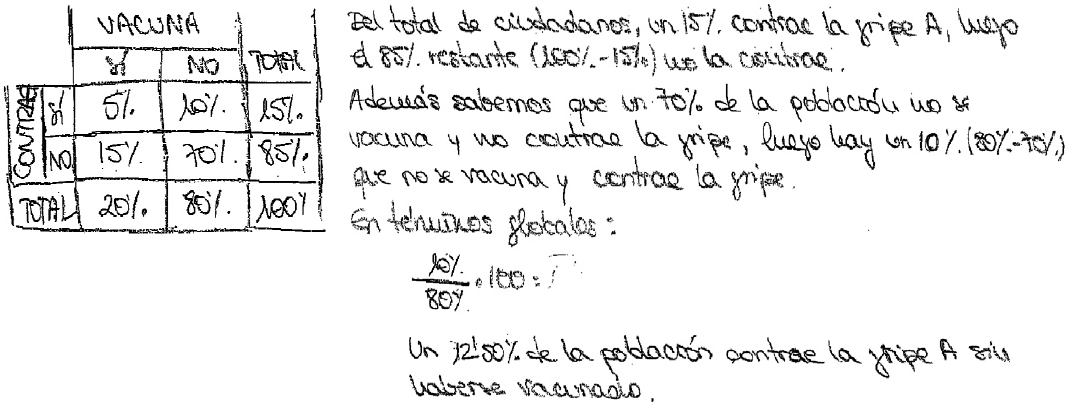 VACUNA
SÍ NO TOTAL
CONTRAE
SÍ 5% 10% 15%
NO 15% 70% 85%
TOTAL 20% 80% 100%
Del total de ciudadanos, un 15% contrae la gripe A, luego
el 85% restante (100%-15%) no la contrae.
Además sabemos que un 70% de la población no se
vacuna y no contrae la gripe, luego hay un 10% (80%-70%)
que no se vacuna y contrae la gripe.
En términos globales:
10%
80% · 100 =
Un 12'50% de la población contrae la gripe A sin
haberse vacunado.